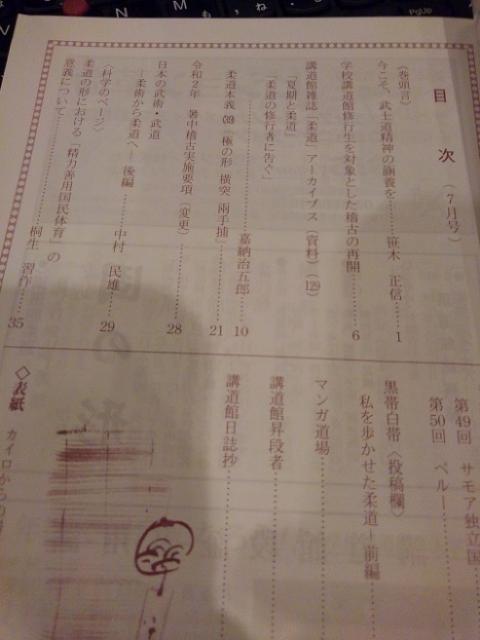 目次(7月号)
〈巻頭言〉
今こそ、武士道精神の涵養を……笹木 正信……1
学校講道館修行生を対象とした稽古の再開……6
講道館雑誌「柔道」アーカイブス(資料)(129)
「夏期と柔道」
「柔道の修行者に告ぐ」
……嘉納治五郎……10
柔道本義(39)「極の形 横突 両手捕」……21
令和2年 暑中稽古実施要項(変更)……28
日本の武術・武道
─柔術から柔道へ─後編……中村 民雄……29
〈科学のページ〉
柔道の形における「精力善用国民体育」の
意義について……桐生 習作……35
第49回 サモア独立国
第50回 ペルー……
黒帯白帯〈投稿欄〉
私を歩かせた柔道─前編
マンガ道場……
講道館昇段者……
講道館日誌抄……
◇表紙 カイロからの